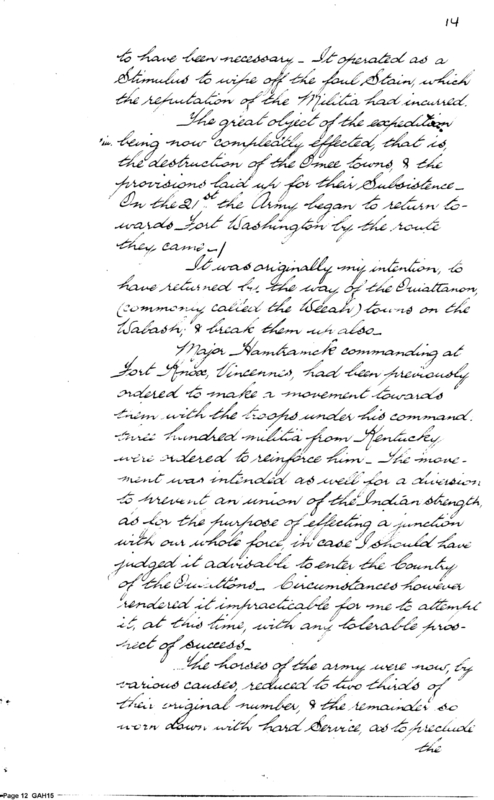 14
to have been necessary - It operated as a
Stimulus to wipe off the foul Stain, which
the reputation of the Militia had incurred.
The great object of the expedition
in. being now compleatly effected, that is,
the destruction of the Omee towns, & the
provisions laid up for their Subsistence -
On the 21st the Army began to return to-
wards Fort Washington by the route
they came -/
It was originally my intention, to
have returned by, the way of the Ouiattanon,
(commonly called the Weeah) towns on the
Wabash, & break them up also -
Major Hamtramck commanding at
Fort Knox, Vincennes, had been previously
ordered to make a movement towards
them with the troops under his command.
three hundred militia from Kentucky
were ordered to reinforce him - The move-
ment was intended as well for a diversion
to prevent an union of the Indian strength,
as for the purpose of effecting a junction
with our whole force, in case I should have
judged it advisable to enter the Country
of the Ouiattons - Circumstances however
rendered it impracticable for me to attempt
it, at this time, with any tolerable pros-
pect of success -
The horses of the army were now, by
various causes, reduced to two thirds of
their original number, & the remainder so
worn down with hard Service, as to preclude
the
Page 12 GAH15